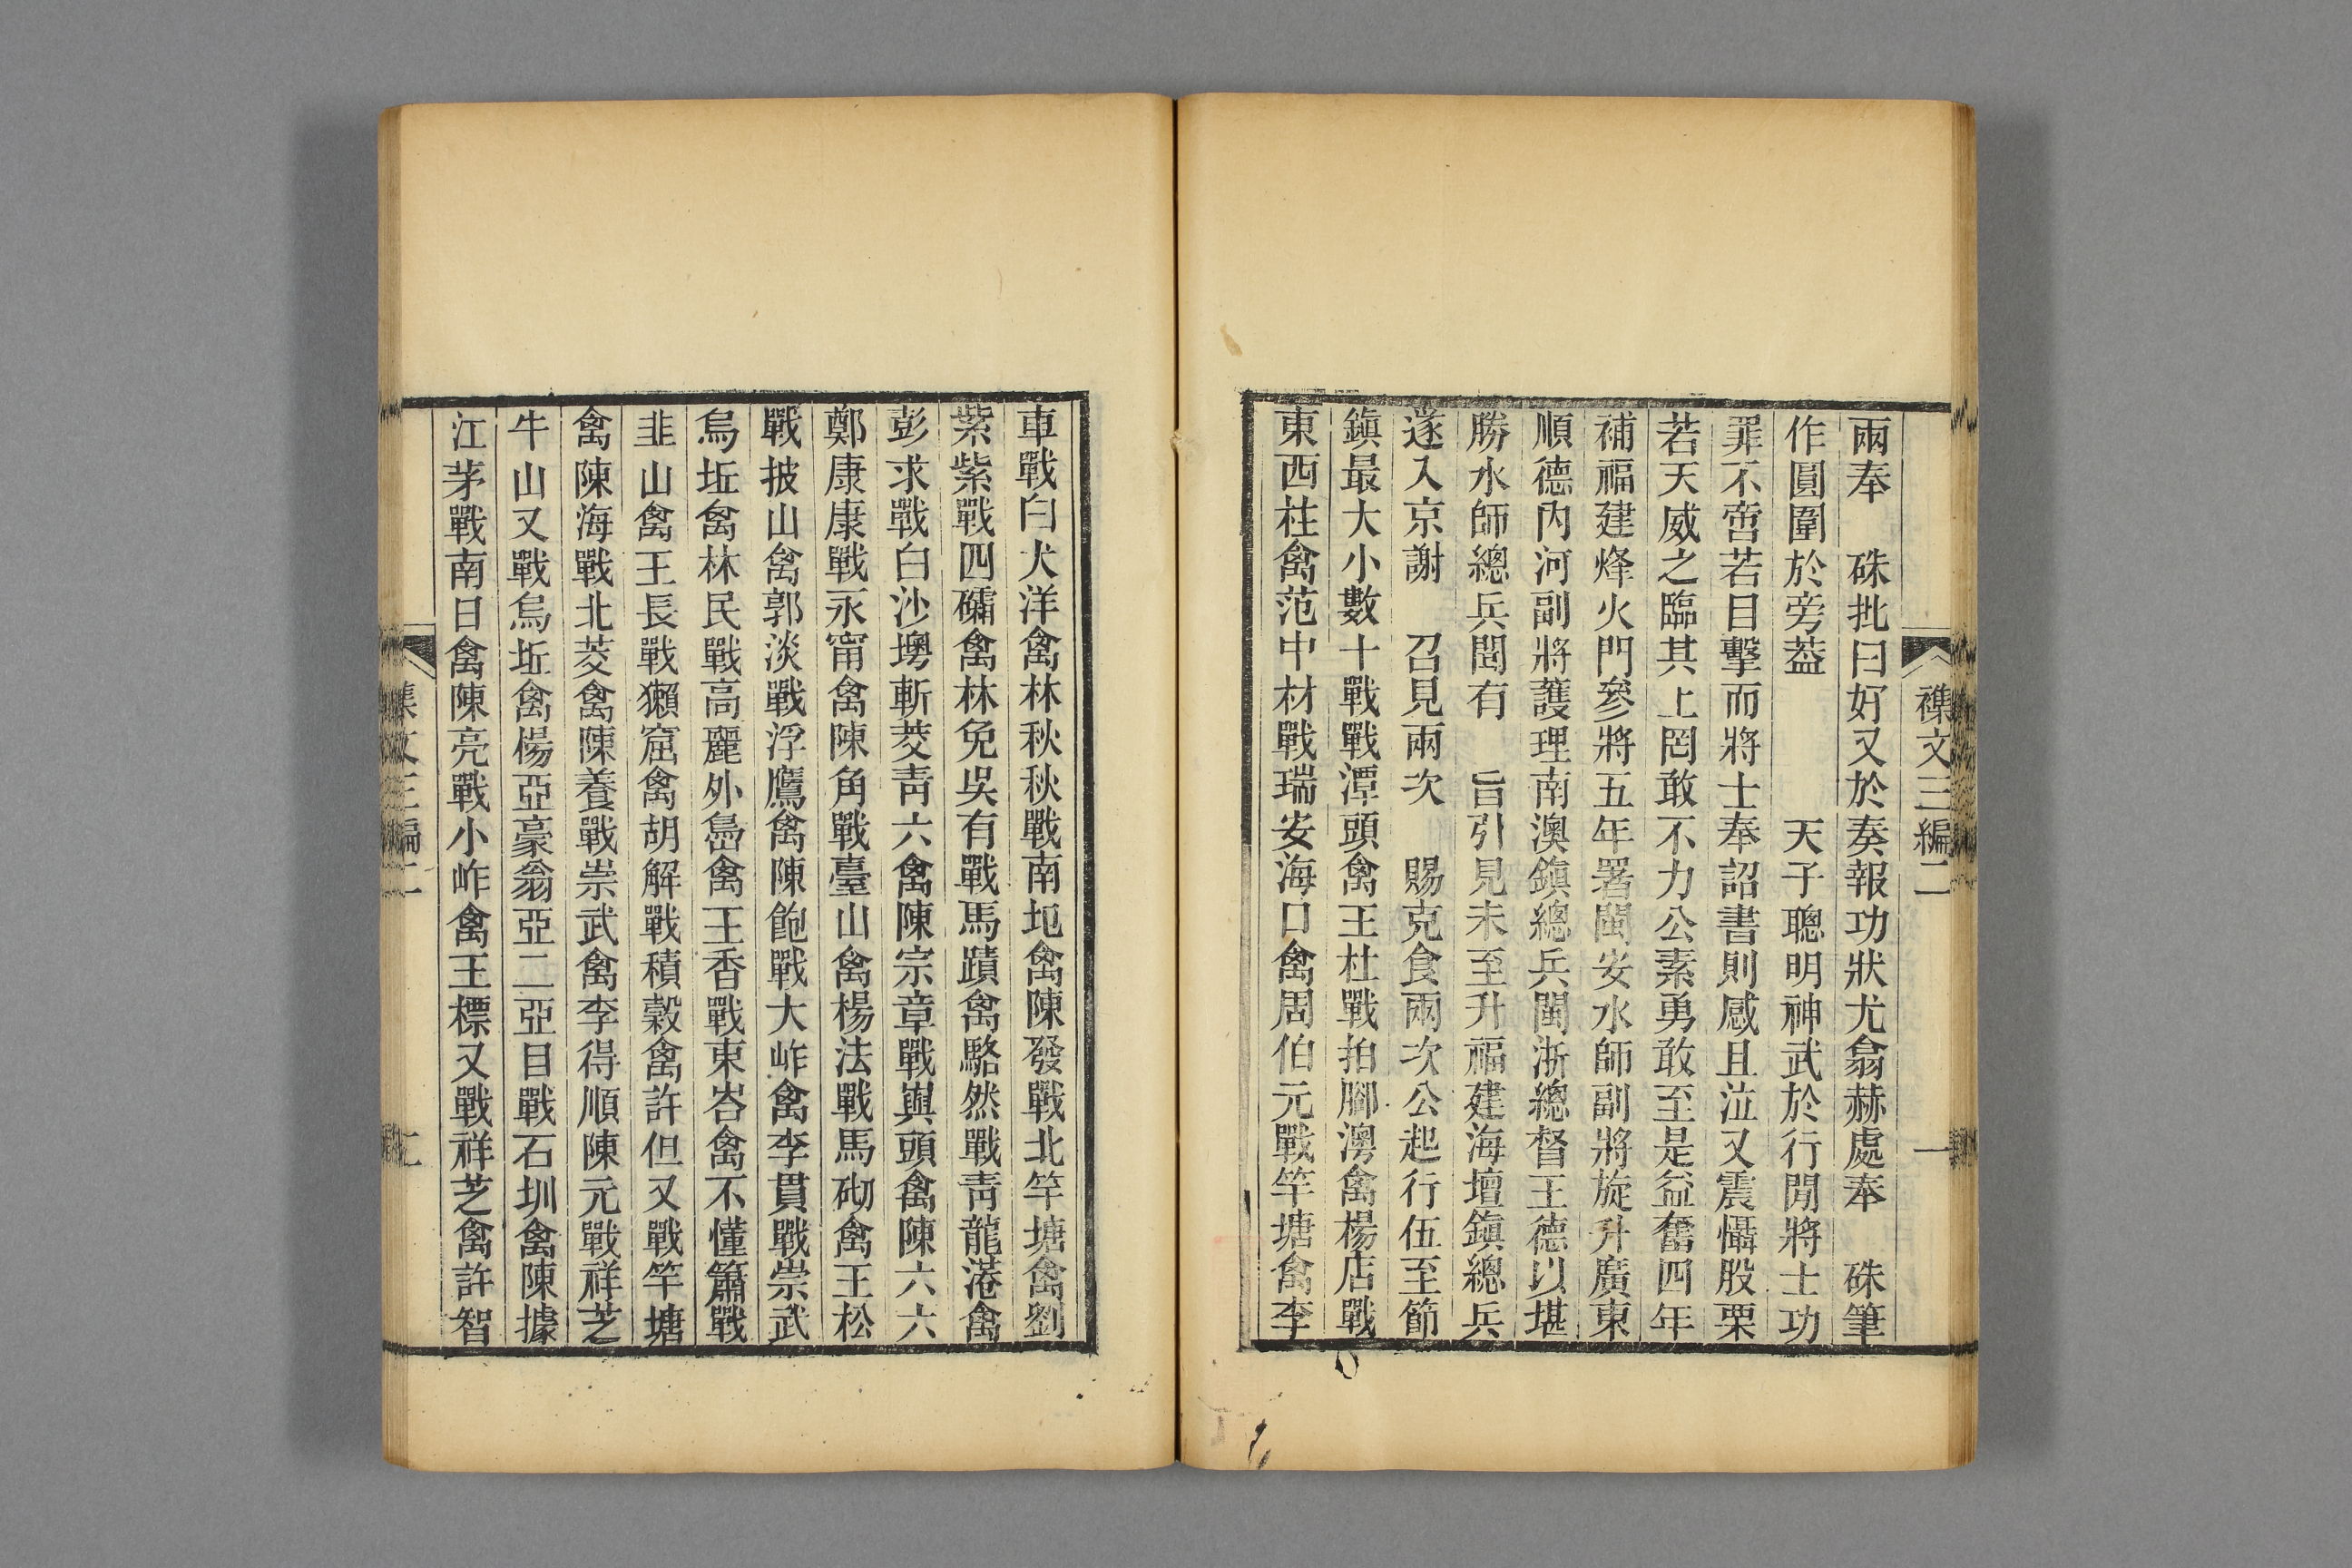 襍文三編二
一
兩奉　硃批曰好又於奏報功狀尤翕赫處奉　硃筆
作圓圍於旁葢　　天子聰明神武於行閒將士功
罪不啻若目擊而將士奉詔書則感且泣又震懾股栗
若天威之臨其上罔敢不力公素勇敢至是益奮四年
補福建烽火門參將五年署閩安水師副將旋升廣東
順德內河副將護理南澳鎮總兵閩浙總督王德以堪
勝水師總兵聞有　旨引見未至升福建海壇鎮總兵
遂入京謝　召見兩次　賜克食兩次公起行伍至節
鎮最大小數十戰戰潭頭禽王杜戰拍腳澚禽楊店戰
東西柱禽范中材戰瑞安海口禽周伯元戰竿塘禽李
車戰白犬洋禽林秋秋戰南圯禽陳發戰北竿塘禽劉
紫紫戰四礵禽林免吳有戰馬蹟禽駱然戰靑龍港禽
彭求戰白沙墺斬菱靑六禽陳宗章戰輿頭禽陳六六
鄭康康戰永甯禽陳角戰臺山禽楊法戰馬砌禽王松
戰披山禽郭淡戰浮鷹禽陳飽戰大岞禽李貫戰崇武
烏坵禽林民戰高麗外島禽王香戰東峇禽不懂簫戰
韭山禽王長戰獺窟禽胡解戰積穀禽許但又戰竿塘
禽陳海戰北茭禽陳養戰崇武禽李得順陳元戰祥芝
牛山又戰烏坵禽楊亞豪翁亞二亞目戰石圳禽陳據
江茅戰南日禽陳亮戰小岞禽王標又戰祥芝禽許智
集文三編二